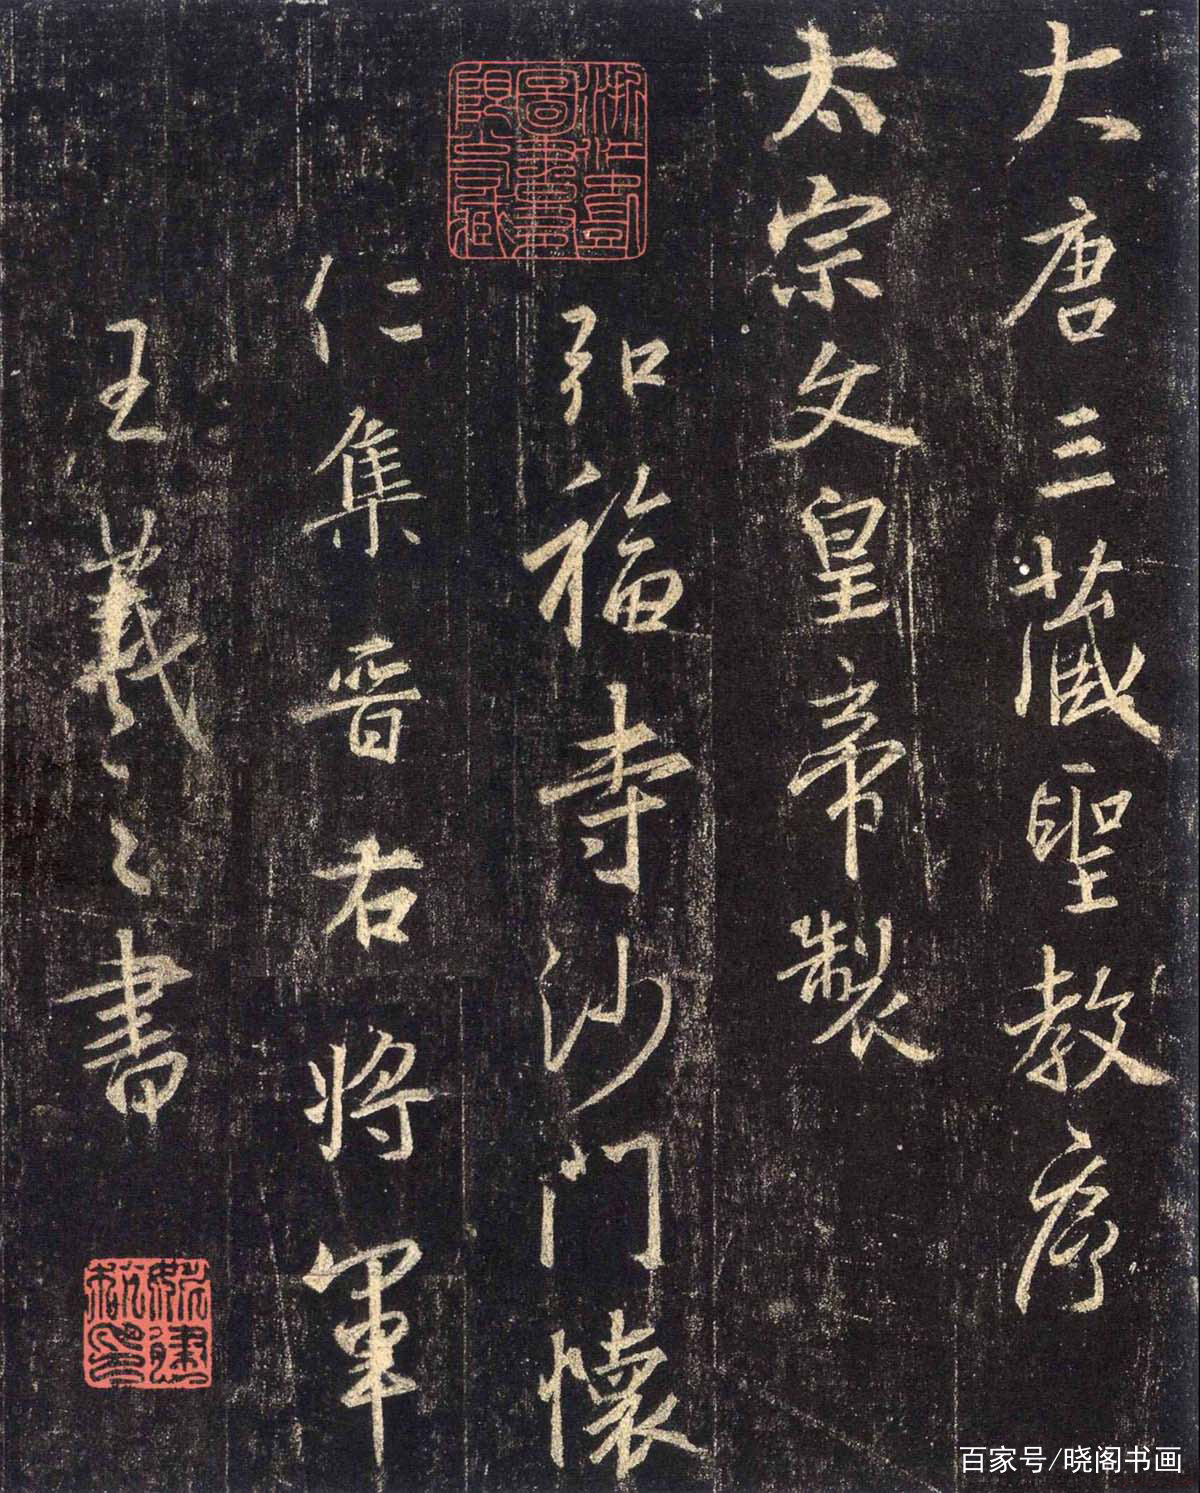 大唐三藏聖教序
太宗文皇帝製
弘福寺沙門懷
仁集晉右將軍
王羲之書
百家号/晓阁书画